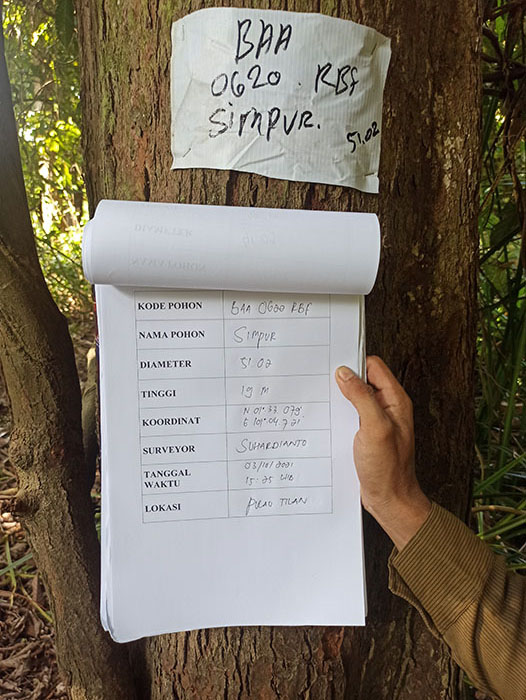 BAA
0620 RBf
SiMPUR.
51.02
KODE POHON BAA 0620 RBf
NAMA POHON SIMPUR
DIAMETER 51.02
TINGGI 19 M
KOORDINAT N 01° 33 079'
E 101° 04 721'
SURVEYOR SUHARDIANTO
TANGGAL WAKTU 03/10/2021
15:25 WIB
LOKASI PULAU TILAN